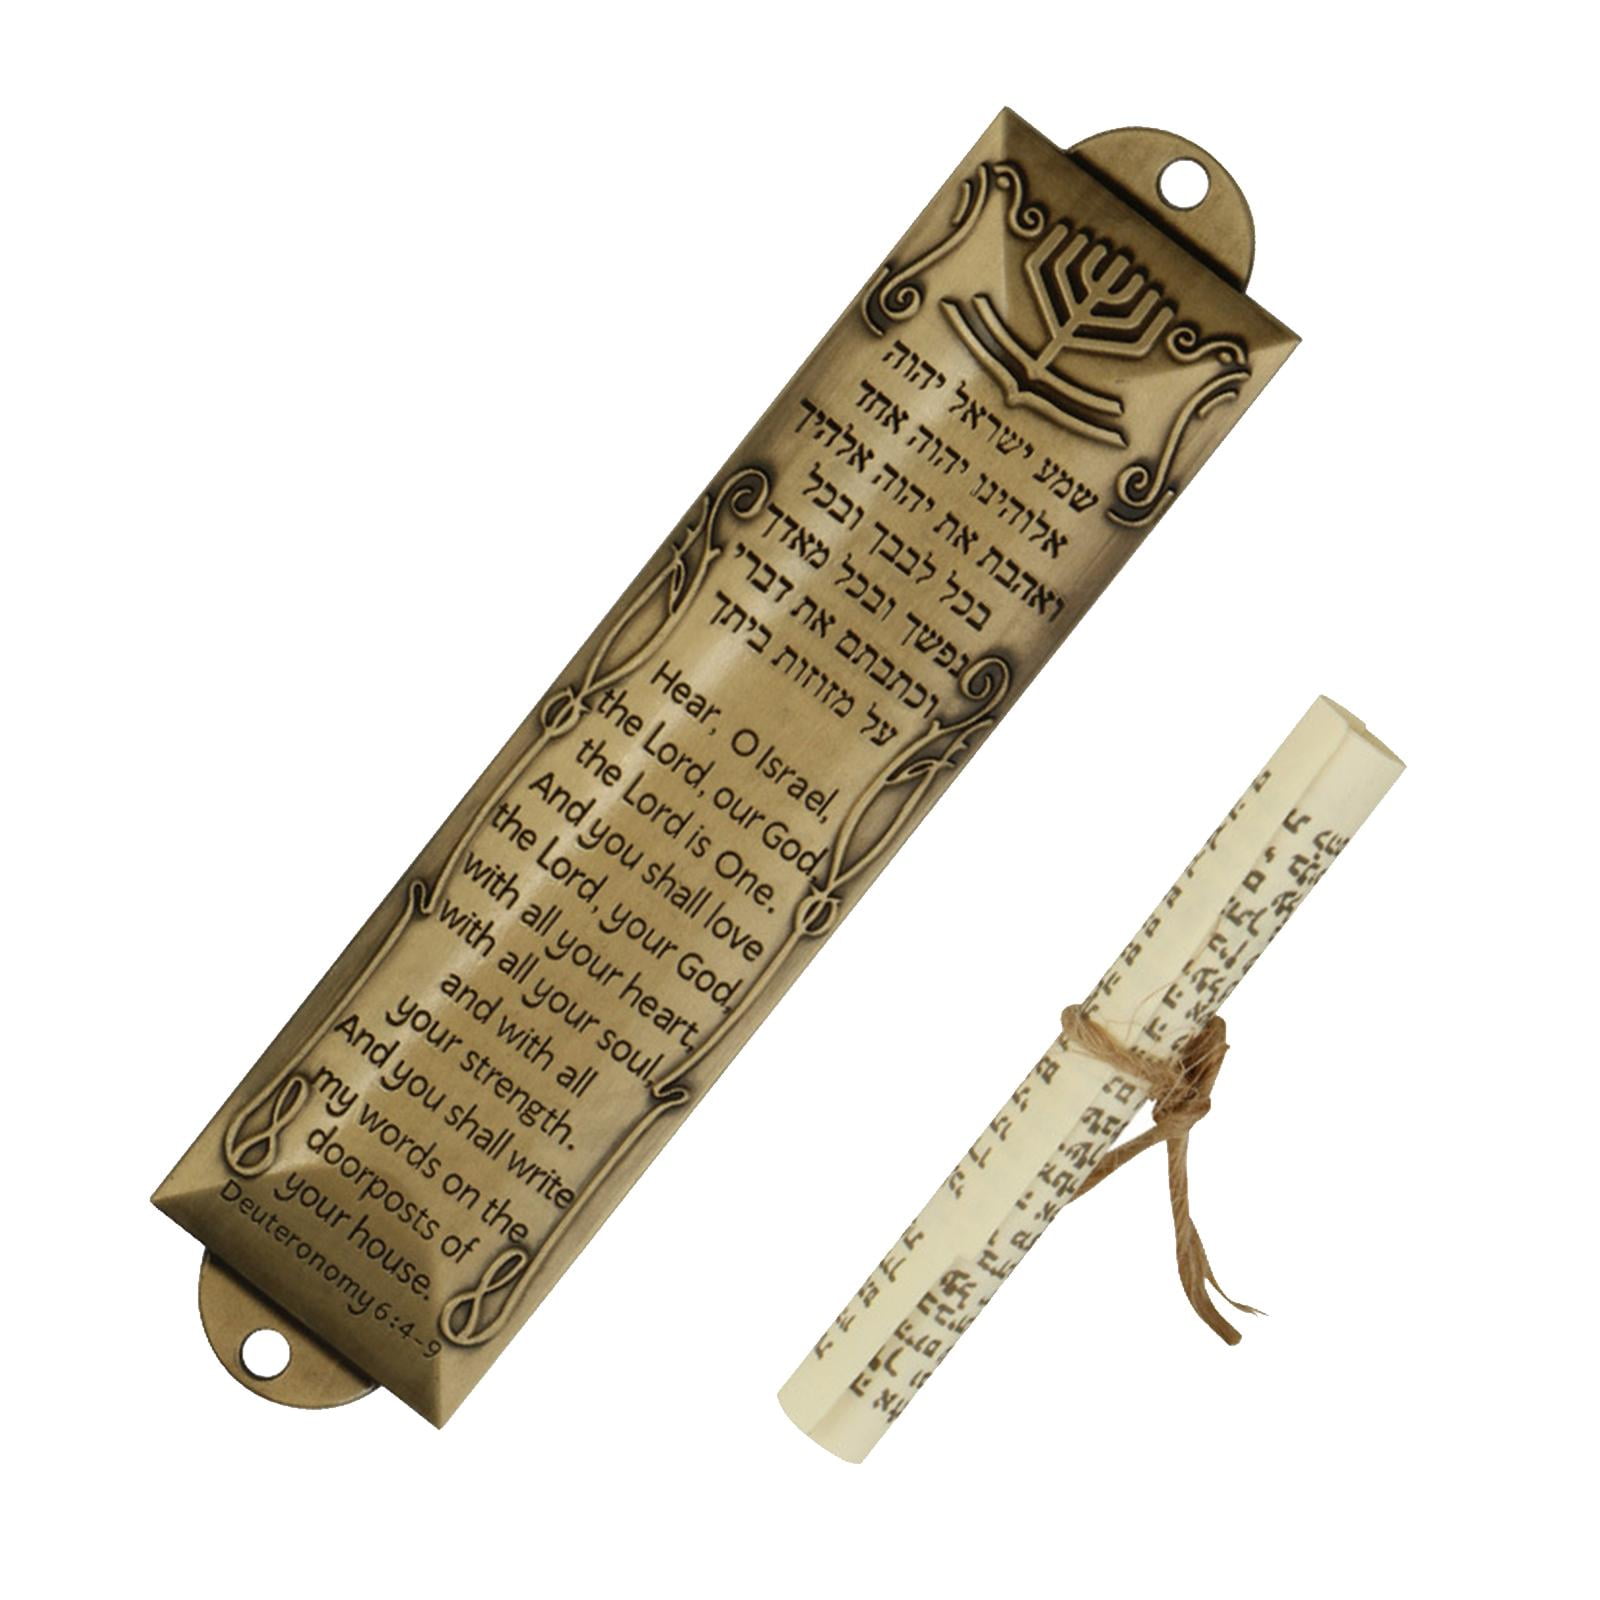 שמע ישראל יהוה
אלוהינו יהוה אחד
ואהבת את יהוה אלהיך
בכל לבבך ובכל
נפשך ובכל מאדך
וכתבתם את דברי
על מזוזות ביתך
Hear, O Israel,
the Lord, our God,
the Lord is One.
And you shall love
the Lord, your God,
with all your heart,
with all your soul,
and with all
your strength.
And you shall write
my words on the
doorposts of
your house.
Deuteronomy 6:4-9